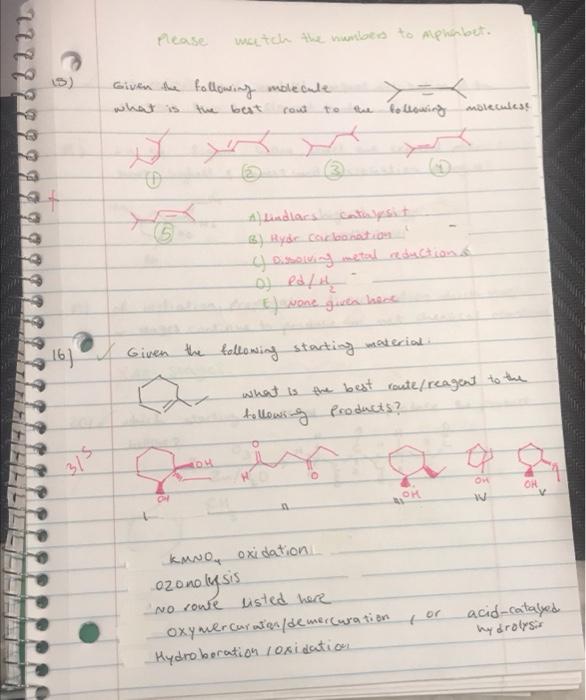 Please match the numbers to Alphabet.
15) Given the following molecule
what is the best rout to the following molecules?
1 2 3 4
5
A) Lindlars Catalysit
B) Hydr carbonation
C) Dissolving metal reductions
D) Pd/H2
E) None given here
16) Given the following starting material:
what is the best route/reagent to the
following Products?
3/5
OH OH I
O H O II
OH III
OH IV
OH V
KMNO4 oxidation
ozonolysis
No route listed here
oxymercuration/demercuration, or acid-catalyed
hydrolysis
Hydroboration/oxidation